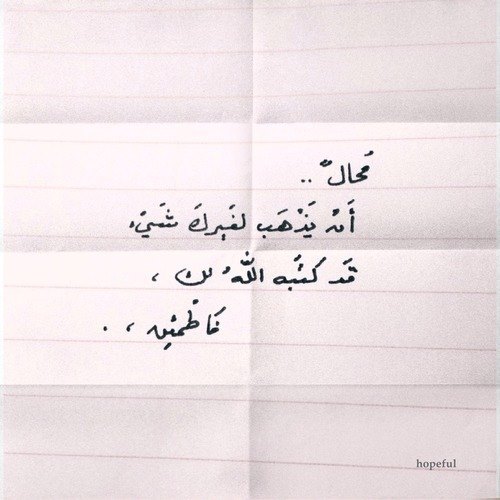 مُحالٌ ..
أَنْ يَذْهَب لغَيرِكَ شَيْء
قَد كتَبه اللهُ لك ،
فَاطْمئِن ، .
hopeful